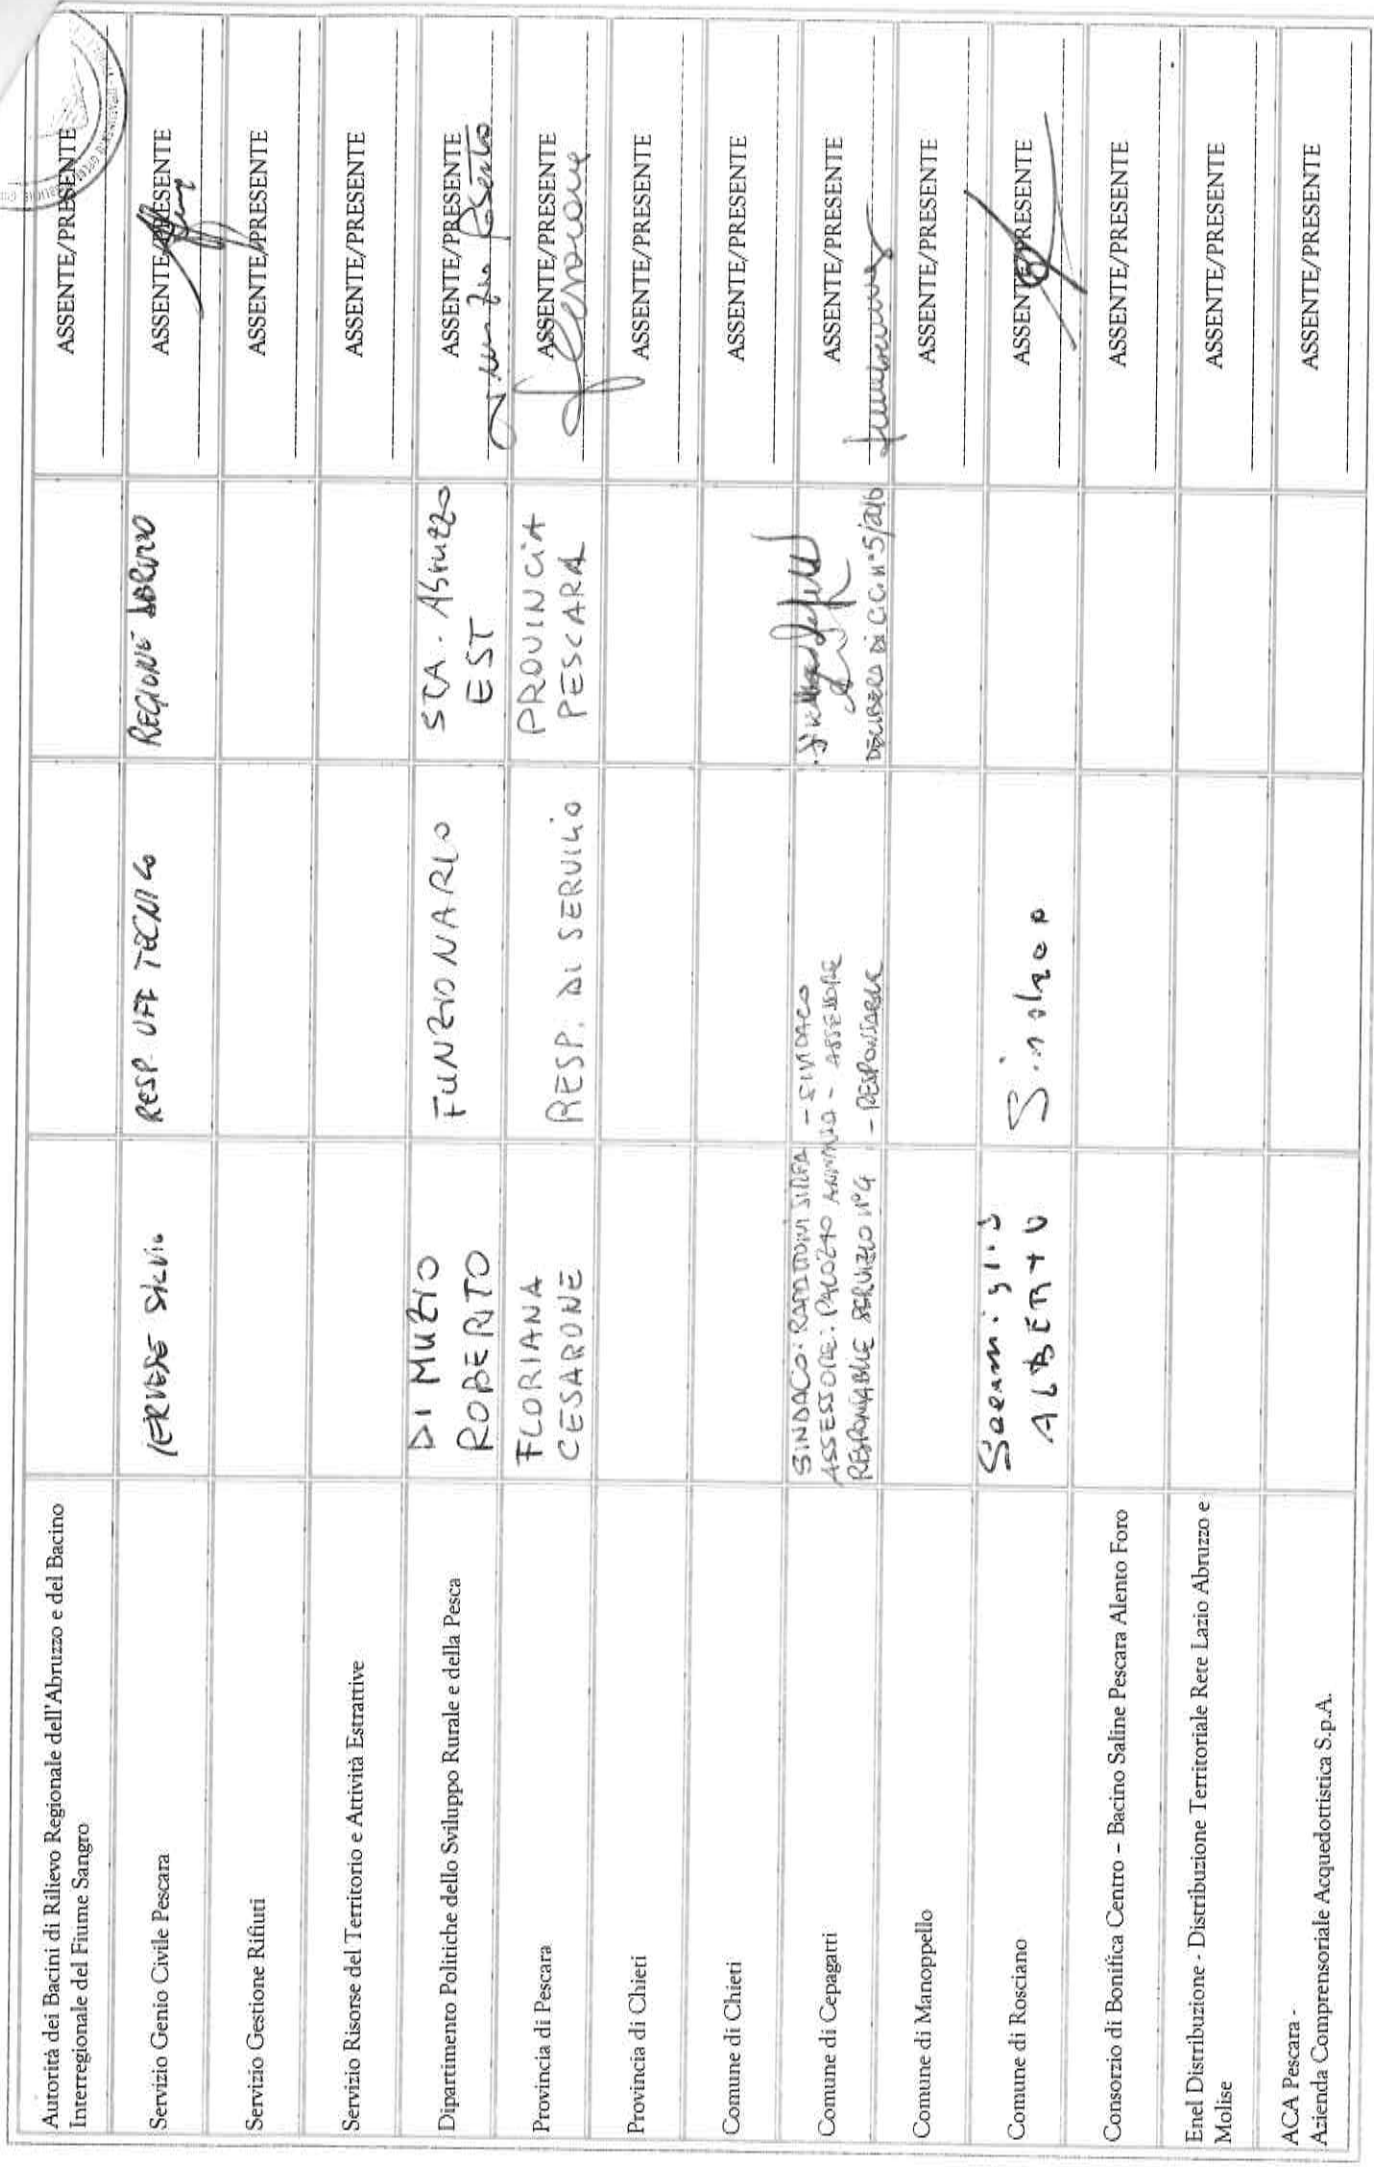 Autorità dei Bacini di Rilievo Regionale dell'Abruzzo e del Bacino
Interregionale del Fiume Sangro
ASSENTE/PRESENTE
Servizio Genio Civile Pescara
RESP. UFF TECNICO
REGIONE ABRUZZO
ASSENTE/PRESENTE
Servizio Gestione Rifiuti
ASSENTE/PRESENTE
Servizio Risorse del Territorio e Attività Estrattive
ASSENTE/PRESENTE
Dipartimento Politiche dello Sviluppo Rurale e della Pesca
DI MUZIO
ROBERTO
FUNZIONARIO
STA. Abruzzo
EST
ASSENTE/PRESENTE
Provincia di Pescara
FLORIANA
CESARONE
RESP. DI SERVIZIO
PROVINCIA
PESCARA
ASSENTE/PRESENTE
Provincia di Chieti
ASSENTE/PRESENTE
Comune di Chieti
ASSENTE/PRESENTE
Comune di Cepagatti
SINDACO: - SINDACO
ASSESSORE: PALOZZO ANNINO - ASSESSORE
RESPONSABILE SERVIZIO N°4 - RESPONSABILE
DELIBERA DI C.C. n°5/2016
ASSENTE/PRESENTE
Comune di Manoppello
ASSENTE/PRESENTE
Comune di Rosciano
ALBERTO
Sindaco
ASSENTE/PRESENTE
Consorzio di Bonifica Centro – Bacino Saline Pescara Alento Foro
ASSENTE/PRESENTE
Enel Distribuzione - Distribuzione Territoriale Rete Lazio Abruzzo e
Molise
ASSENTE/PRESENTE
ACA Pescara -
Azienda Comprensoriale Acquedottistica S.p.A.
ASSENTE/PRESENTE